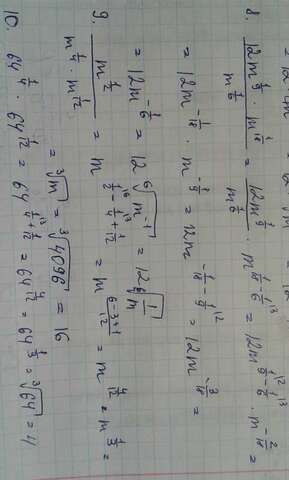 8. \frac{12m^{\frac{1}{9}} · m^{\frac{1}{18}}}{m^{\frac{1}{6}}} = \frac{12m^{\frac{1}{9}}}{m^{\frac{1}{6}}} · = 12m^{\frac{1}{9}-\frac{1}{6}} · m^{-\frac{2}{18}} =
= 12m^{-\frac{1}{18}} · m^{-\frac{1}{9}} = 12m^{-\frac{1}{18}-\frac{1}{9}} = 12m^{-\frac{3}{18}} =
= 12m^{-\frac{1}{6}} = 12\sqrt[6]{m^{-1}} = 12\sqrt[6]{\frac{1}{m}}
9. \frac{m^{\frac{1}{2}}}{m^{\frac{1}{4}} · m^{\frac{1}{12}}} = m^{\frac{1}{2}-\frac{1}{4}+\frac{1}{12}} = m^{\frac{6-3+1}{12}} = m^{\frac{4}{12}} = m^{\frac{1}{3}} =
= \sqrt[3]{m} = \sqrt[3]{4096} = 16
10. 64^{\frac{1}{4}} · 64^{\frac{1}{12}} = 64^{\frac{1}{4}+\frac{1}{12}} = 64^{\frac{4}{12}} = 64^{\frac{1}{3}} = \sqrt[3]{64} = 4